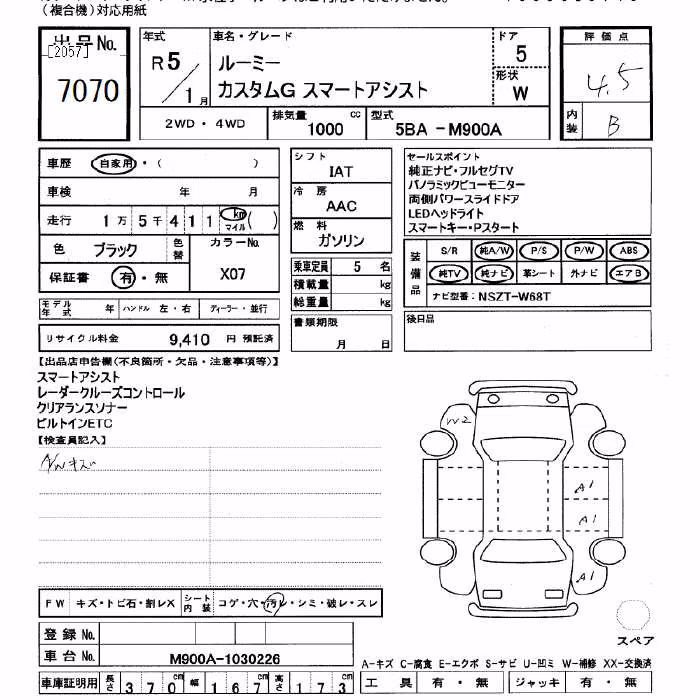 （複合機）対応用紙
出品No.
[2057]
7070
年式
R5/1月
車名・グレード
ルーミー
カスタムG スマートアシスト
ドア
5
形状
W
評価点
4.5
内装
B
2WD・4WD
排気量 1000 cc
型式 5BA -M900A
車歴 自家用・( )
車検 年 月
走行 1万5千411 km マイル ( )
色 ブラック 色替
カラーNo.
X07
保証書 有・無
シフト
IAT
冷房
AAC
燃料
ガソリン
乗車定員 5 名
積載量 kg
総重量 kg
セールスポイント
純正ナビ・フルセグTV
パノラミックビューモニター
両側パワースライドドア
LEDヘッドライト
スマートキー・Pスタート
装備品
S/R 純A/W P/S P/W ABS
純TV 純ナビ 革シート 外ナビ エアB
ナビ型番: NSZT-W68T
モデル年式 年 ハンドル 左・右 ディーラー・並行
リサイクル料金 9,410 円 預託済
書類期限
月 日
後日品
【出品店申告欄(不良箇所・欠品・注意事項等)】
スマートアシスト
レーダークルーズコントロール
クリアランスソナー
ビルトインETC
【検査員記入】
A/Wキズ
W2
A1
A1
A1
FW キズ・トビ石・割レX
シート内装 コゲ・穴・汚レ・シミ・破レ・スレ
登録No.
車台No. M900A-1030226
スペア
A-キズ C-腐食 E-エクボ S-サビ U-凹ミ W-補修 XX-交換済
車庫証明用 長さ 370cm 幅 167cm 高さ 173cm
工具 有・無 ジャッキ 有・無